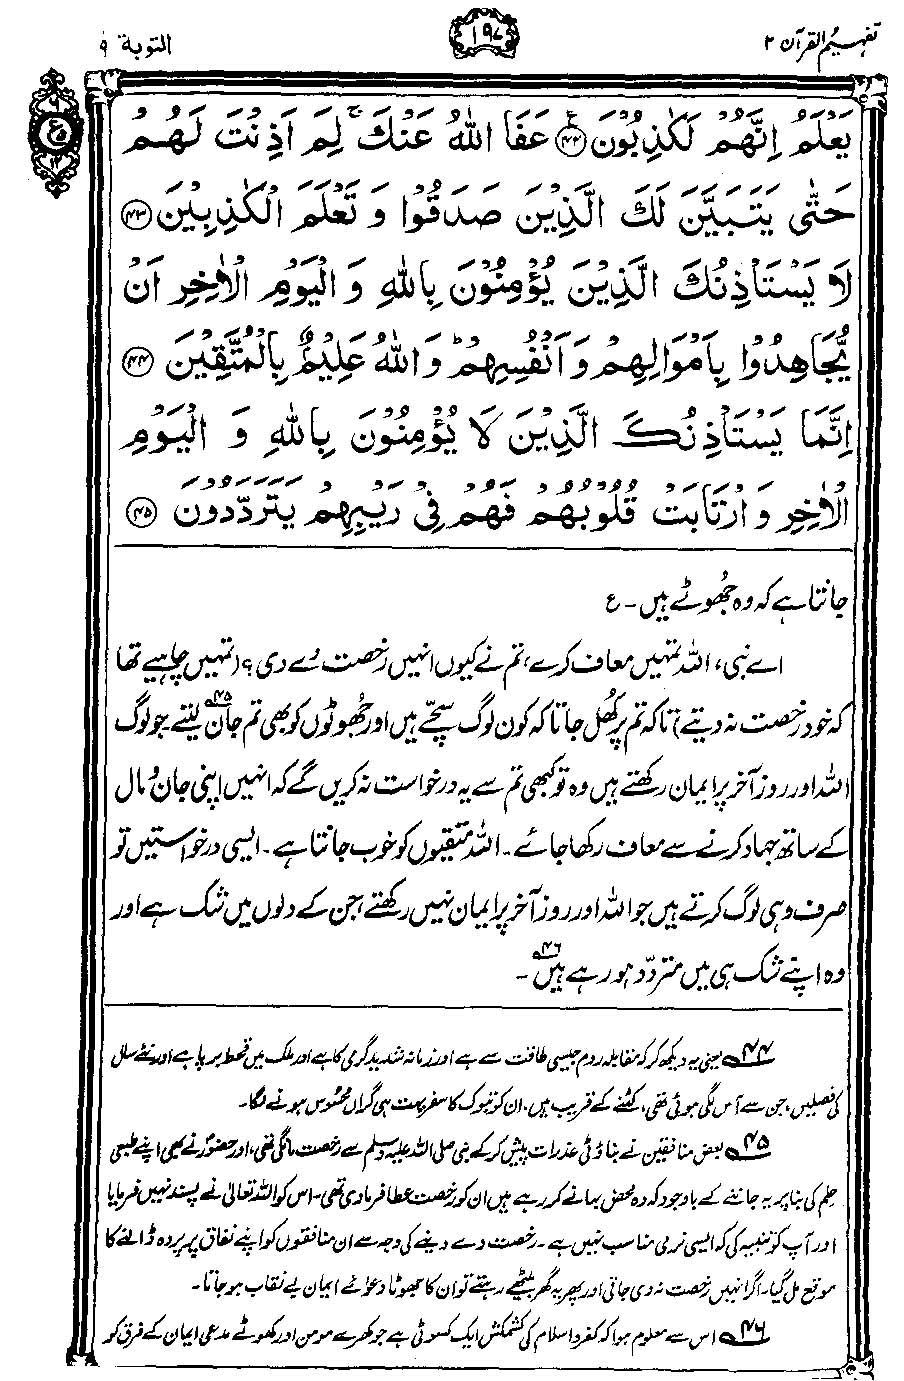 تفہیم القرآن ۲
۱۹۷
التوبۃ ۹
يَعْلَمُ اِنَّهُمْ لَكٰذِبُوْنَ ﴿۴۲﴾ عَفَا اللّٰهُ عَنْكَ ۚ لِمَ اَذِنْتَ لَهُمْ
حَتّٰى يَتَبَيَّنَ لَكَ الَّذِيْنَ صَدَقُوْا وَ تَعْلَمَ الْكٰذِبِيْنَ ﴿۴۳﴾
لَا يَسْتَاْذِنُكَ الَّذِيْنَ يُؤْمِنُوْنَ بِاللّٰهِ وَ الْيَوْمِ الْاٰخِرِ اَنْ
يُّجَاهِدُوْا بِاَمْوَالِهِمْ وَ اَنْفُسِهِمْ ؕ وَ اللّٰهُ عَلِيْمٌۢ بِالْمُتَّقِيْنَ ﴿۴۴﴾
اِنَّمَا يَسْتَاْذِنُكَ الَّذِيْنَ لَا يُؤْمِنُوْنَ بِاللّٰهِ وَ الْيَوْمِ
الْاٰخِرِ وَ ارْتَابَتْ قُلُوْبُهُمْ فَهُمْ فِيْ رَيْبِهِمْ يَتَرَدَّدُوْنَ ﴿۴۵﴾
جانتا ہے کہ وہ جُھوٹے ہیں۔ ع
اے نبی، اللہ تمہیں معاف کرے، تم نے کیوں انہیں رخصت دے دی؟ (تمہیں چاہیے تھا
کہ خود رخصت نہ دیتے) تاکہ تم پر کُھل جاتا کہ کون لوگ سچّے ہیں اور جُھوٹوں کو بھی تم جان لیتے۔ ۴۵ جو لوگ
اللہ اور روزِ آخر پر ایمان رکھتے ہیں وہ تو کبھی تم سے یہ درخواست نہ کریں گے کہ انہیں اپنی جان و مال
کے ساتھ جہاد کرنے سے معاف رکھا جائے۔ اللہ متقیوں کو خوب جانتا ہے۔ ایسی درخواستیں تو
صرف وہی لوگ کرتے ہیں جو اللہ اور روزِ آخر پر ایمان نہیں رکھتے، جن کے دلوں میں شک ہے اور
وہ اپنے شک ہی میں متردّد ہو رہے ہیں۔ ۴۶
۴۴ یعنی یہ دیکھ کر کہ مقابلہ روم جیسی طاقت سے ہے اور زمانہ شدید گرمی کا ہے اور ملک میں قحط برپا ہے اور نئے سال
کی فصلیں، جن سے آس لگی ہوئی تھی، کٹنے کے قریب ہیں، ان کو تبوک کا سفر بہت ہی گراں محسُوس ہونے لگا۔
۴۵ بعض منافقین نے بناوٹی عذرات پیش کر کے نبی صلی اللہ علیہ وسلم سے رخصت مانگی تھی، اور حضورؐ نے بھی اپنے طبعی
حِلم کی بنا پر یہ جاننے کے باوجود کہ وہ محض بہانے کر رہے ہیں ان کو رخصت عطا فرما دی تھی۔ اس کو اللہ تعالیٰ نے پسند نہیں فرمایا
اور آپ کو تنبیہ کی کہ ایسی نرمی مناسب نہیں ہے۔ رخصت دے دینے کی وجہ سے ان منافقوں کو اپنے نفاق پر پردہ ڈالنے کا
موقع مل گیا۔ اگر انہیں رخصت نہ دی جاتی اور پھر یہ گھر بیٹھے رہتے تو ان کا جھوٹا دعوائے ایمان بے نقاب ہو جاتا۔
۴۶ اس سے معلوم ہوا کہ کفر و اسلام کی کشمکش ایک کسوٹی ہے جو کھرے مومن اور کھوٹے مدعی ایمان کے فرق کو